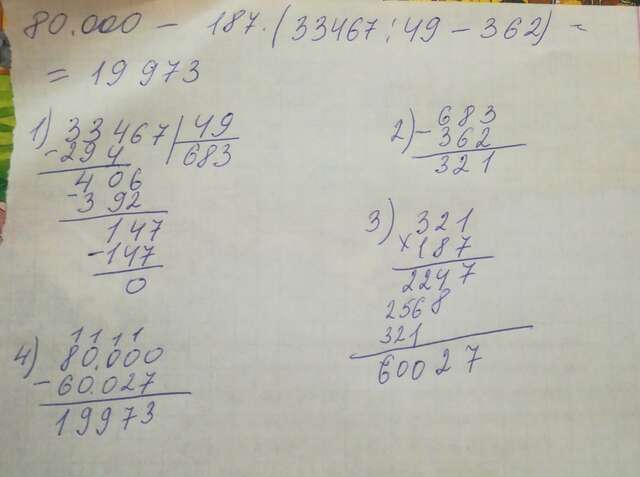 80.000 - 187.(33467:49-362) =
= 19973
1) 33467 | 49
- 294 683
406
- 392
147
- 147
0
2) - 683
362
321
3) 321
× 187
2247
2568
321
60027
4) 1111
80.000
- 60.027
19973